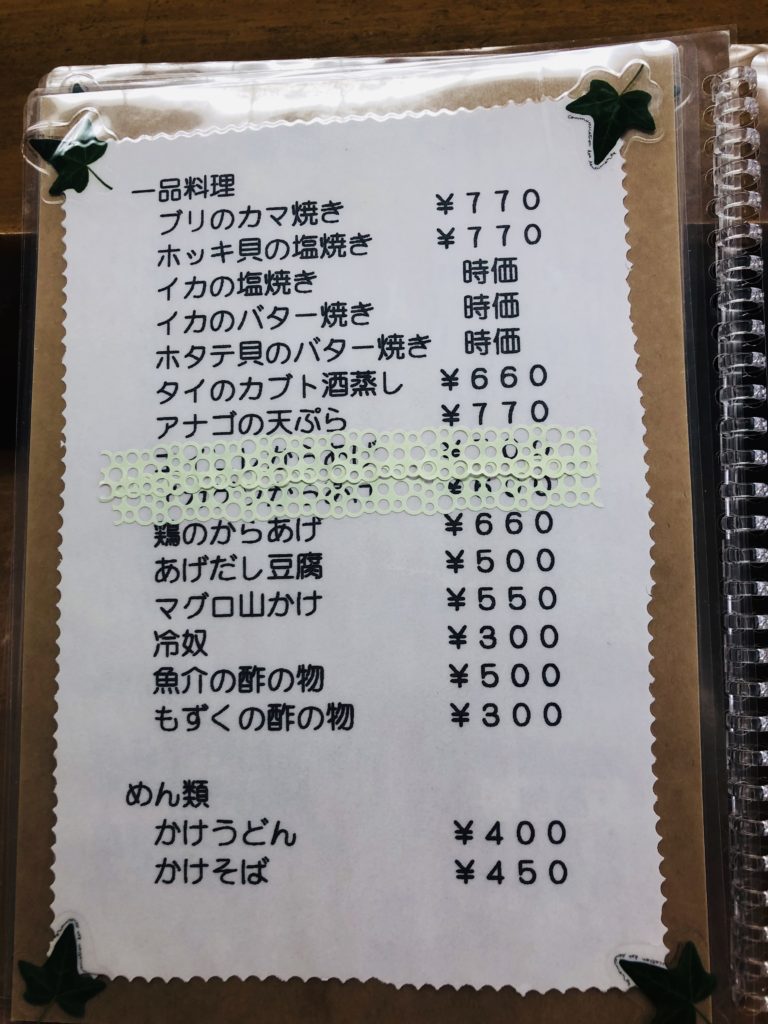 一品料理
ブリのカマ焼き ¥770
ホッキ貝の塩焼き ¥770
イカの塩焼き 時価
イカのバター焼き 時価
ホタテ貝のバター焼き 時価
タイのカブト酒蒸し ¥660
アナゴの天ぷら ¥770
鶏のからあげ ¥660
あげだし豆腐 ¥500
マグロ山かけ ¥550
冷奴 ¥300
魚介の酢の物 ¥500
もずくの酢の物 ¥300
めん類
かけうどん ¥400
かけそば ¥450